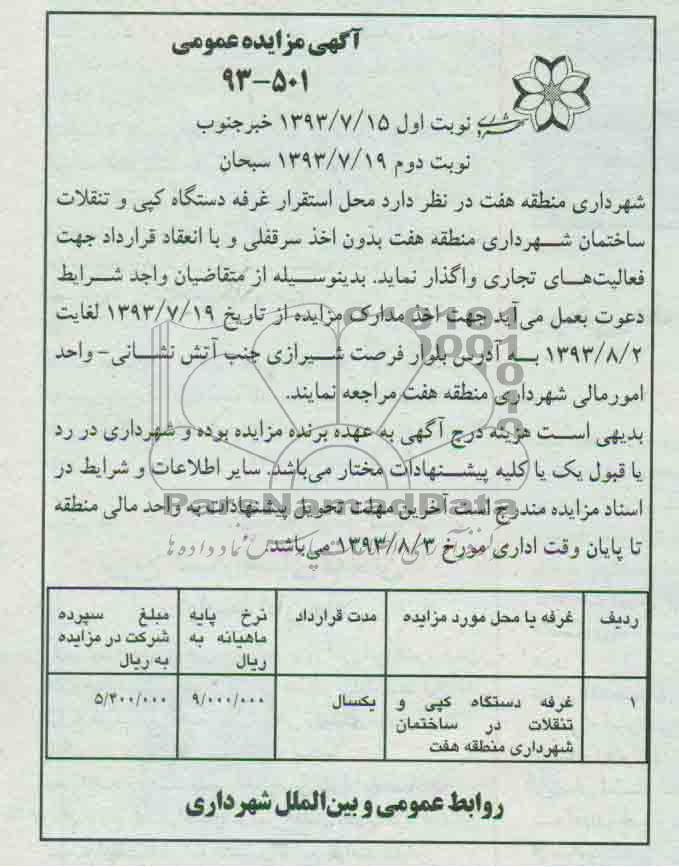 آگهی مزایده عمومی
۹۳-۵۰۱
نوبت اول ۱۳۹۳/۷/۱۵ خبرجنوب
نوبت دوم ۱۳۹۳/۷/۱۹ سبحان
شهرداری منطقه هفت در نظر دارد محل استقرار غرفه دستگاه کپی و تنقلات
ساختمان شهرداری منطقه هفت بدون اخذ سرقفلی و با انعقاد قرارداد جهت
فعالیت‌های تجاری واگذار نماید. بدینوسیله از متقاضیان واجد شرایط
دعوت بعمل می‌آید جهت اخذ مدارک مزایده از تاریخ ۱۳۹۳/۷/۱۹ لغایت
۱۳۹۳/۸/۲ به آدرس بلوار فرصت شیرازی جنب آتش نشانی- واحد
امورمالی شهرداری منطقه هفت مراجعه نمایند.
بدیهی است هزینه درج آگهی به عهده برنده مزایده بوده و شهرداری در رد
یا قبول یک یا کلیه پیشنهادات مختار می‌باشد. سایر اطلاعات و شرایط در
اسناد مزایده مندرج است آخرین مهلت تحویل پیشنهادات به واحد مالی منطقه
تا پایان وقت اداری مورخ ۱۳۹۳/۸/۳ می‌باشد.
ParsNamadData
ردیف غرفه یا محل مورد مزایده مدت قرارداد نرخ پایه ماهیانه به ریال مبلغ سپرده شرکت در مزایده به ریال
۱ غرفه دستگاه کپی و تنقلات در ساختمان شهرداری منطقه هفت یکسال ۹/۰۰۰/۰۰۰ ۵/۴۰۰/۰۰۰
روابط عمومی و بین‌الملل شهرداری